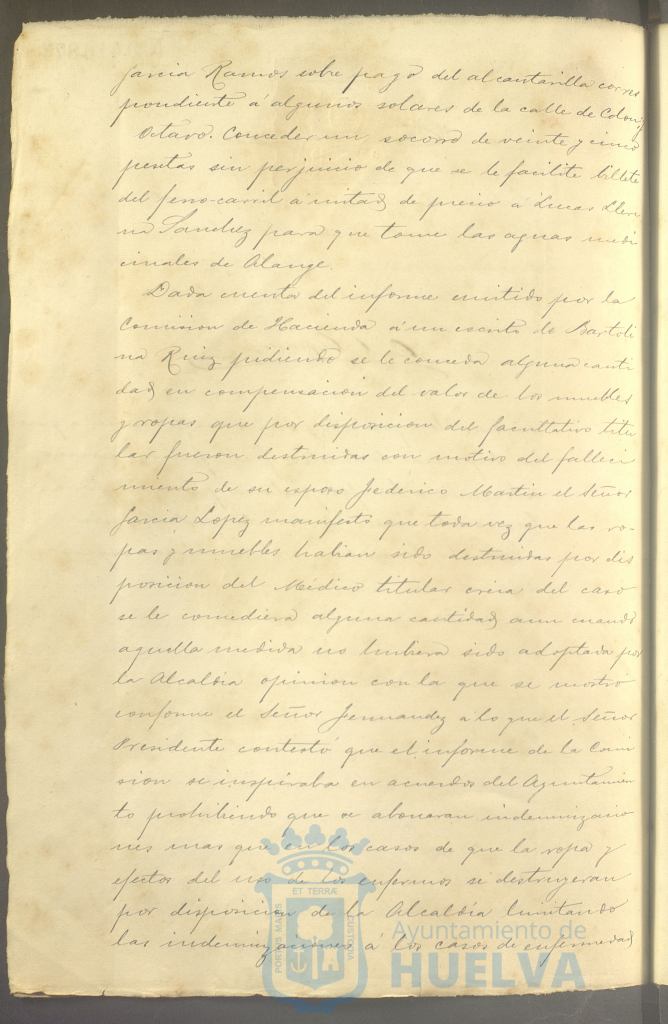 Garcia Ramos sobre pago del alcantarilla corres
pondiente á algunos solares de la calle de Colon y
Octavo. Conceder un socorro de veinte y cinco
pesetas sin perjuicio de que se le facilite billete
del ferro-carril á mitad de precio á Lucas Llere
na Sanchez para que tome las aguas medi
cinales de Alange.
Dada cuenta del informe emitido por la
Comision de Hacienda á un escrito de Bartoli
na Ruiz pidiendo se le conceda alguna canti
dad en compensacion del valor de los muebles
y ropas que por disposicion del facultativo titu
lar fueron destruidas con motivo del falleci
miento de su esposo Federico Martin el Señor
Garcia Lopez manifestó que toda vez que las ro-
pas y muebles habian sido destruidas por dis
posicion del Médico titular creia del caso
se le concediera alguna cantidad aun cuando
aquella medida no hubiera sido adoptada por
la Alcaldia opinion con la que se mostró
conforme el Señor Fernandez á lo que el Señor
Presidente contestó que el informe de la Comi
sion se inspiraba en acuerdos del Ayuntamien
to prohibiendo que se abonaran indemnizacio
nes mas que en los casos de que la ropa y
efectos del uso de los enfermos se destruyeran
por disposicion de la Alcaldía limitando
las indemnizaciones á los casos de enfermedad
ET TERRÆ
PORTUS MARIS
CUSTODIA
Ayuntamiento de
HUELVA